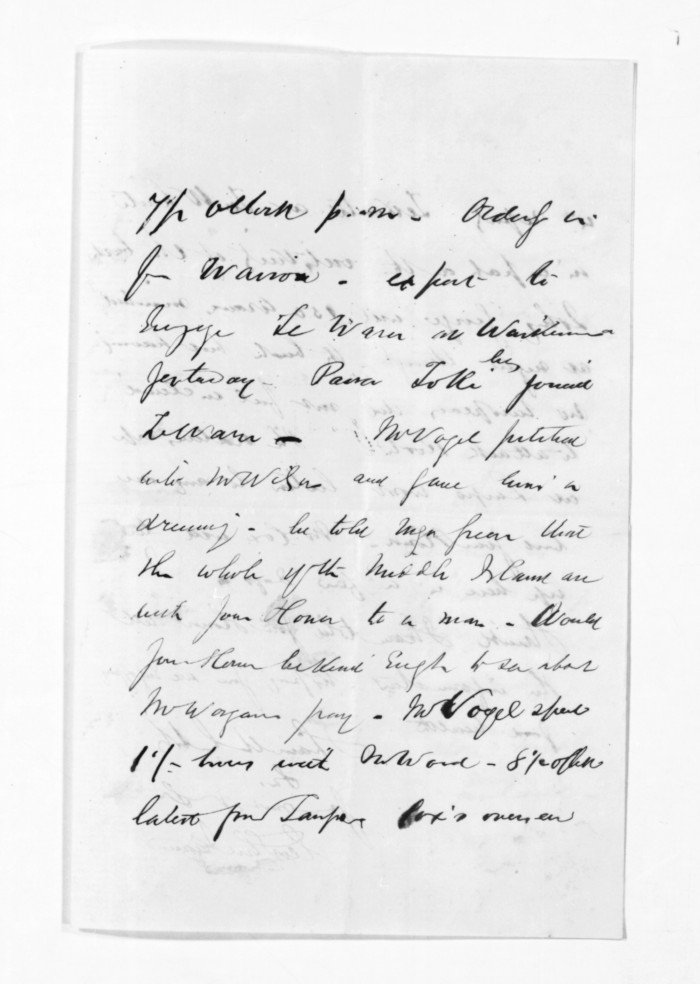 7½ oClock p.m. - Orderly in
from Wairoa - expect to
Engage Te Waru at Waikaremoana
yesterday - Paora Toki has joined
Te Waru - Mr Vogel pitched
into Mr Wilson and gave him a
dressing - he told that
the whole of the Middle Island are
with your Honor to a man - Would
your Honor be kind Enough to see about
Mr Worgans pay - Mr Vogel spent
1½ hours with Mr Ward - 8½ oClock
latest from Taupo Cox's overseer